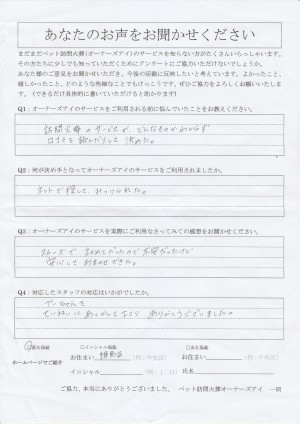 あなたのお声をお聞かせください
まだまだペット訪問火葬(オーナーズアイ)のサービスを知らない方がたくさんいらっしゃいます。
その方たちに少しでも知っていただくためにアンケートにご協力いただけないでしょうか。
あなた様のご意見をお聞かせいただき、今後の活動に反映したいと考えています。よかったこと、
嬉しかったこと、どのような些細なことでもけっこうです。ぜひご協力をよろしくお願いいたしま
す。(できるだけ具体的に書いていただけると助かります)
Q1：オーナーズアイのサービスをご利用される前に悩んでいたことをお教えください。
訪問火葬のサービスが、どんなものかわからず
口コミを読んだりして決めた。
Q2：何が決め手となってオーナーズアイのサービスをご利用されましたか。
ネットで探して、みつけられた。
Q3：オーナーズアイのサービスを実際にご利用なさってみての感想をお聞かせください。
スムーズで 初めてだったので不安だったけど
安心しておまかせできた。
Q4：対応したスタッフの対応はいかがでしたか。
ていねいに あつかって下さり ありがとうございました。
匿名掲載 □イニシャル掲載 □実名掲載
ホームページでご紹介
お住まい (例：中央区)
お住まい (例：中央区)
イニシャル (例：J．H)
氏名
ご協力、本当にありがとうございました。 ペット訪問火葬オーナーズアイ 一同